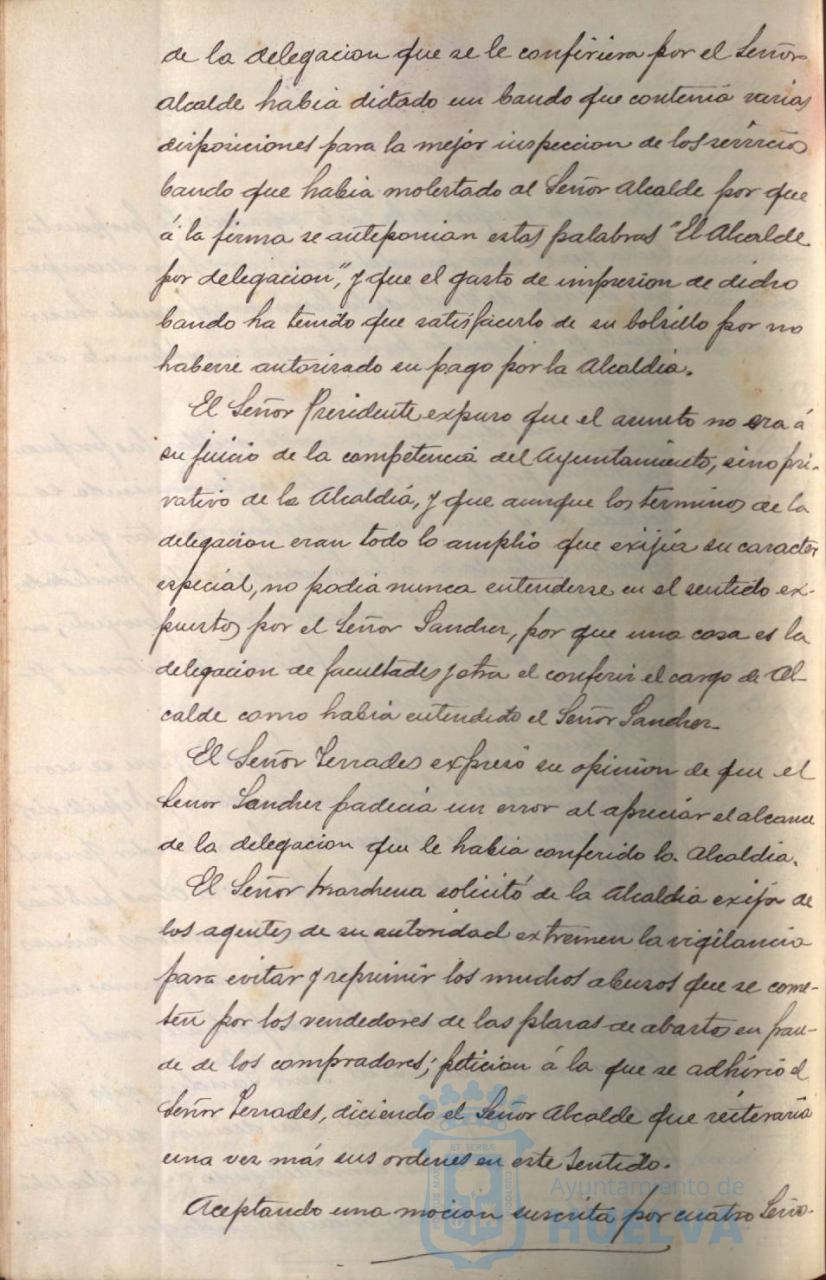 de la delegacion que se le confiriera por el Señor
Alcalde habia dictado un bando que contenia varias
disposiciones para la mejor inspeccion de los servicios
bando que habia molestado al Señor Alcalde por que
á la firma se anteponian estas palabras "El Alcalde
por delegacion", y que el gasto de impresion de dicho
bando ha tenido que satisfacerlo de su bolsillo por no
haberse autorisado su pago por la Alcaldia.
El Señor Presidente expuso que el asunto no era á
su juicio de la competencia del Ayuntamiento, sino pri-
vativo de la Alcaldia, y que aunque los terminos de la
delegacion eran todo lo amplio que exijia su caracter
especial, no podia nunca entenderse en el sentido ex-
puesto por el Señor Sanchez, por que una cosa es la
delegacion de facultades y otra el conferir el cargo de Al-
calde como habia entendido el Señor Sanchez.
El Señor Terrades expresó su opinion de que el
Señor Sanchez padecia un error al apreciar el alcance
de la delegacion que le habia conferido la Alcaldia.
El Señor Marchena solicitó de la Alcaldia exija de
los agentes de su autoridad extremen la vigilancia
para evitar y reprimir los muchos abusos que se come-
ten por los vendedores de las plazas de abastos en frau-
de de los compradores; peticion á la que se adhirió el
Señor Terrades, diciendo el Señor Alcalde que reiteraria
una vez más sus ordenes en este sentido.
Aceptando una mocion suscrita por cuatro Seño-
Ayuntamiento de
HUELVA